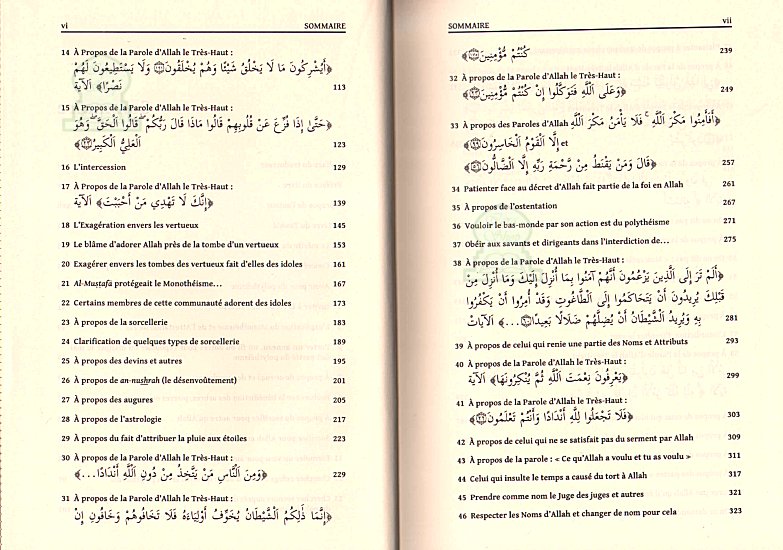 vi SOMMAIRE
14 À Propos de la Parole d'Allah le Très-Haut :
﴿أَيُشْرِكُونَ مَا لَا يَخْلُقُ شَيْئًا وَهُمْ يُخْلَقُونَ وَلَا يَسْتَطِيعُونَ لَهُمْ
نَصْرًا﴾ الآيَةَ 113
15 À Propos de la Parole d'Allah le Très-Haut :
﴿حَتَّىٰ إِذَا فُزِّعَ عَنْ قُلُوبِهِمْ قَالُوا مَاذَا قَالَ رَبُّكُمْ ۖ قَالُوا الْحَقَّ ۖ وَهُوَ
الْعَلِيُّ الْكَبِيرُ﴾ 123
16 L'intercession 129
17 À Propos de la Parole d'Allah le Très-Haut :
﴿إِنَّكَ لَا تَهْدِي مَنْ أَحْبَبْتَ﴾ الآيَةَ 139
18 L'Exagération envers les vertueux 145
19 Le blâme d'adorer Allah près de la tombe d'un vertueux 153
20 Exagérer envers les tombes des vertueux fait d'elles des idoles 161
21 Al-Muṣṭafá protégeait le Monothéisme... 167
22 Certains membres de cette communauté adorent des idoles 173
23 À propos de la sorcellerie 183
24 Clarification de quelques types de sorcellerie 189
25 À propos des devins et autres 195
26 À propos de an-nushrah (le désenvoûtement) 201
27 À propos des augures 205
28 À propos de l'astrologie 217
29 À propos du fait d'attribuer la pluie aux étoiles 223
30 À propos de la Parole d'Allah le Très-Haut :
﴿وَمِنَ النَّاسِ مَنْ يَتَّخِذُ مِنْ دُونِ اللَّهِ أَنْدَادًا...﴾ 229
31 À propos de la Parole d'Allah le Très-Haut :
﴿إِنَّمَا ذَٰلِكُمُ الشَّيْطَانُ يُخَوِّفُ أَوْلِيَاءَهُ فَلَا تَخَافُوهُمْ وَخَافُونِ إِنْ
SOMMAIRE vii
كُنْتُمْ مُؤْمِنِينَ﴾ 239
32 À propos de la Parole d'Allah le Très-Haut :
﴿وَعَلَى اللَّهِ فَتَوَكَّلُوا إِنْ كُنْتُمْ مُؤْمِنِينَ﴾ 249
33 À propos des Paroles d'Allah ﴿أَفَأَمِنُوا مَكْرَ اللَّهِ ۚ فَلَا يَأْمَنُ مَكْرَ اللَّهِ
إِلَّا الْقَوْمُ الْخَاسِرُونَ﴾ et
﴿قَالَ وَمَنْ يَقْنَطُ مِنْ رَحْمَةِ رَبِّهِ إِلَّا الضَّالُّونَ﴾ 257
34 Patienter face au décret d'Allah fait partie de la foi en Allah 261
35 À propos de l'ostentation 267
36 Vouloir le bas-monde par son action est du polythéisme 271
37 Obéir aux savants et dirigeants dans l'interdiction de... 275
38 À propos de la Parole d'Allah le Très-Haut :
﴿أَلَمْ تَرَ إِلَى الَّذِينَ يَزْعُمُونَ أَنَّهُمْ آمَنُوا بِمَا أُنْزِلَ إِلَيْكَ وَمَا أُنْزِلَ مِنْ
قَبْلِكَ يُرِيدُونَ أَنْ يَتَحَاكَمُوا إِلَى الطَّاغُوتِ وَقَدْ أُمِرُوا أَنْ يَكْفُرُوا
بِهِ وَيُرِيدُ الشَّيْطَانُ أَنْ يُضِلَّهُمْ ضَلَالًا بَعِيدًا...﴾ الآيَاتَ 281
39 À propos de celui qui renie une partie des Noms et Attributs 293
40 À propos de la Parole d'Allah le Très-Haut :
﴿يَعْرِفُونَ نِعْمَتَ اللَّهِ ثُمَّ يُنْكِرُونَهَا﴾ الآيَةَ 299
41 À propos de la Parole d'Allah le Très-Haut :
﴿فَلَا تَجْعَلُوا لِلَّهِ أَنْدَادًا وَأَنْتُمْ تَعْلَمُونَ﴾ 303
42 À propos de celui qui ne se satisfait pas du serment par Allah 309
43 À propos de la parole : « Ce qu'Allah a voulu et tu as voulu » 311
44 Celui qui insulte le temps a causé du tort à Allah 317
45 Prendre comme nom le Juge des juges et autres 321
46 Respecter les Noms d'Allah et changer de nom pour cela 323